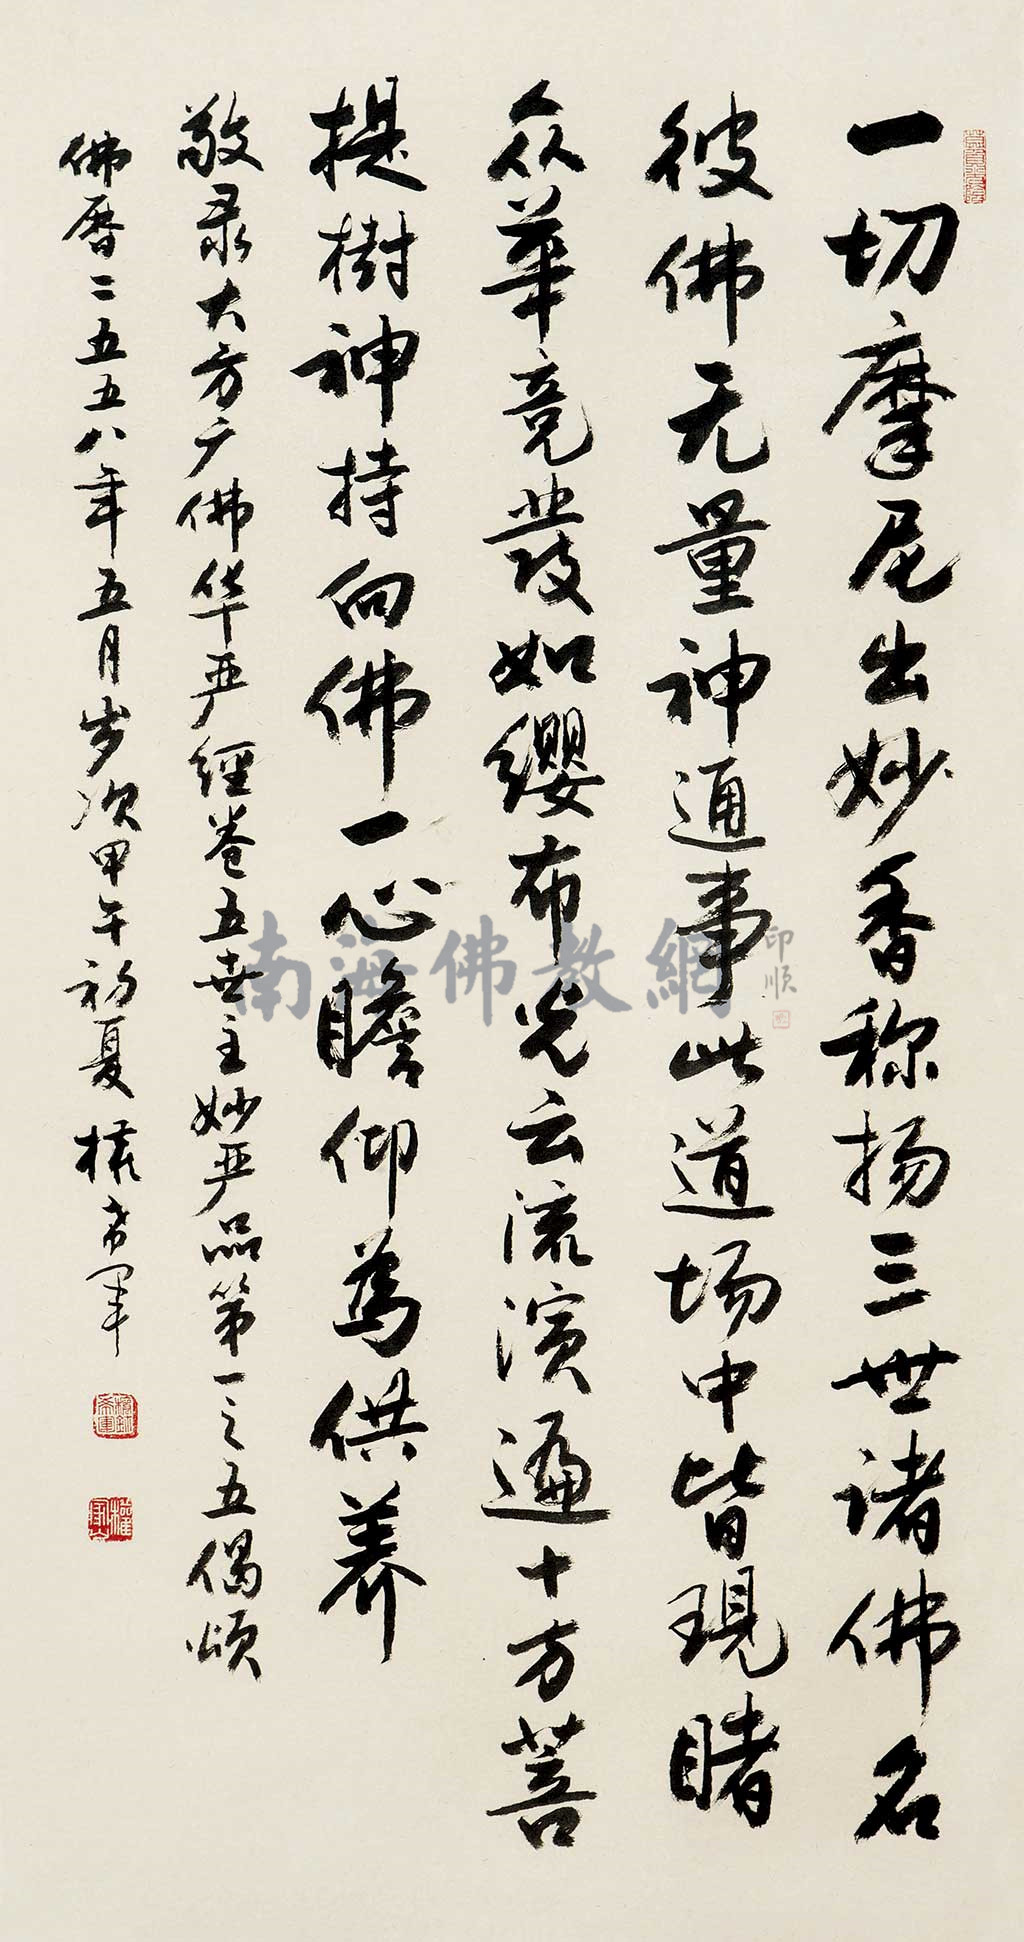 一切摩尼出妙香称扬三世诸佛名
彼佛无量神通事此道场中皆現睹
众華竞發如缨布光云流演遍十方菩
提樹神持向佛一心瞻仰為供养
敬录大方广佛华严經卷五世主妙严品第一之五偈颂
佛曆二五五八年五月岁次甲午初夏権希军
南海佛教網
印順